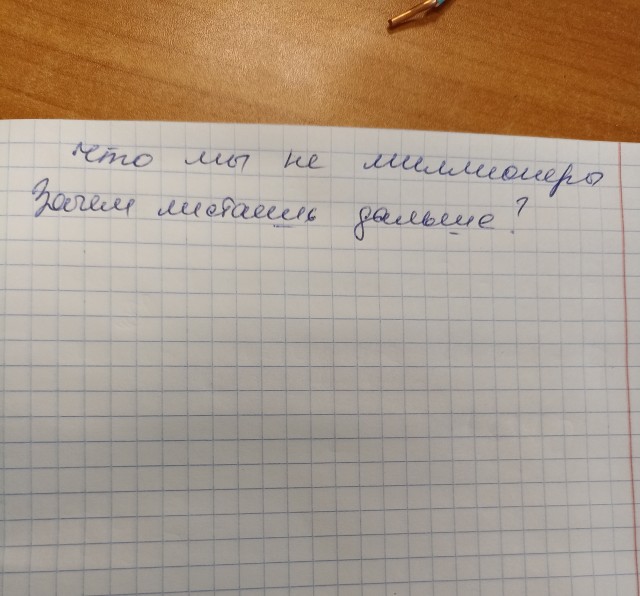 что мы не миллионеры
Зачем листаешь дальше?